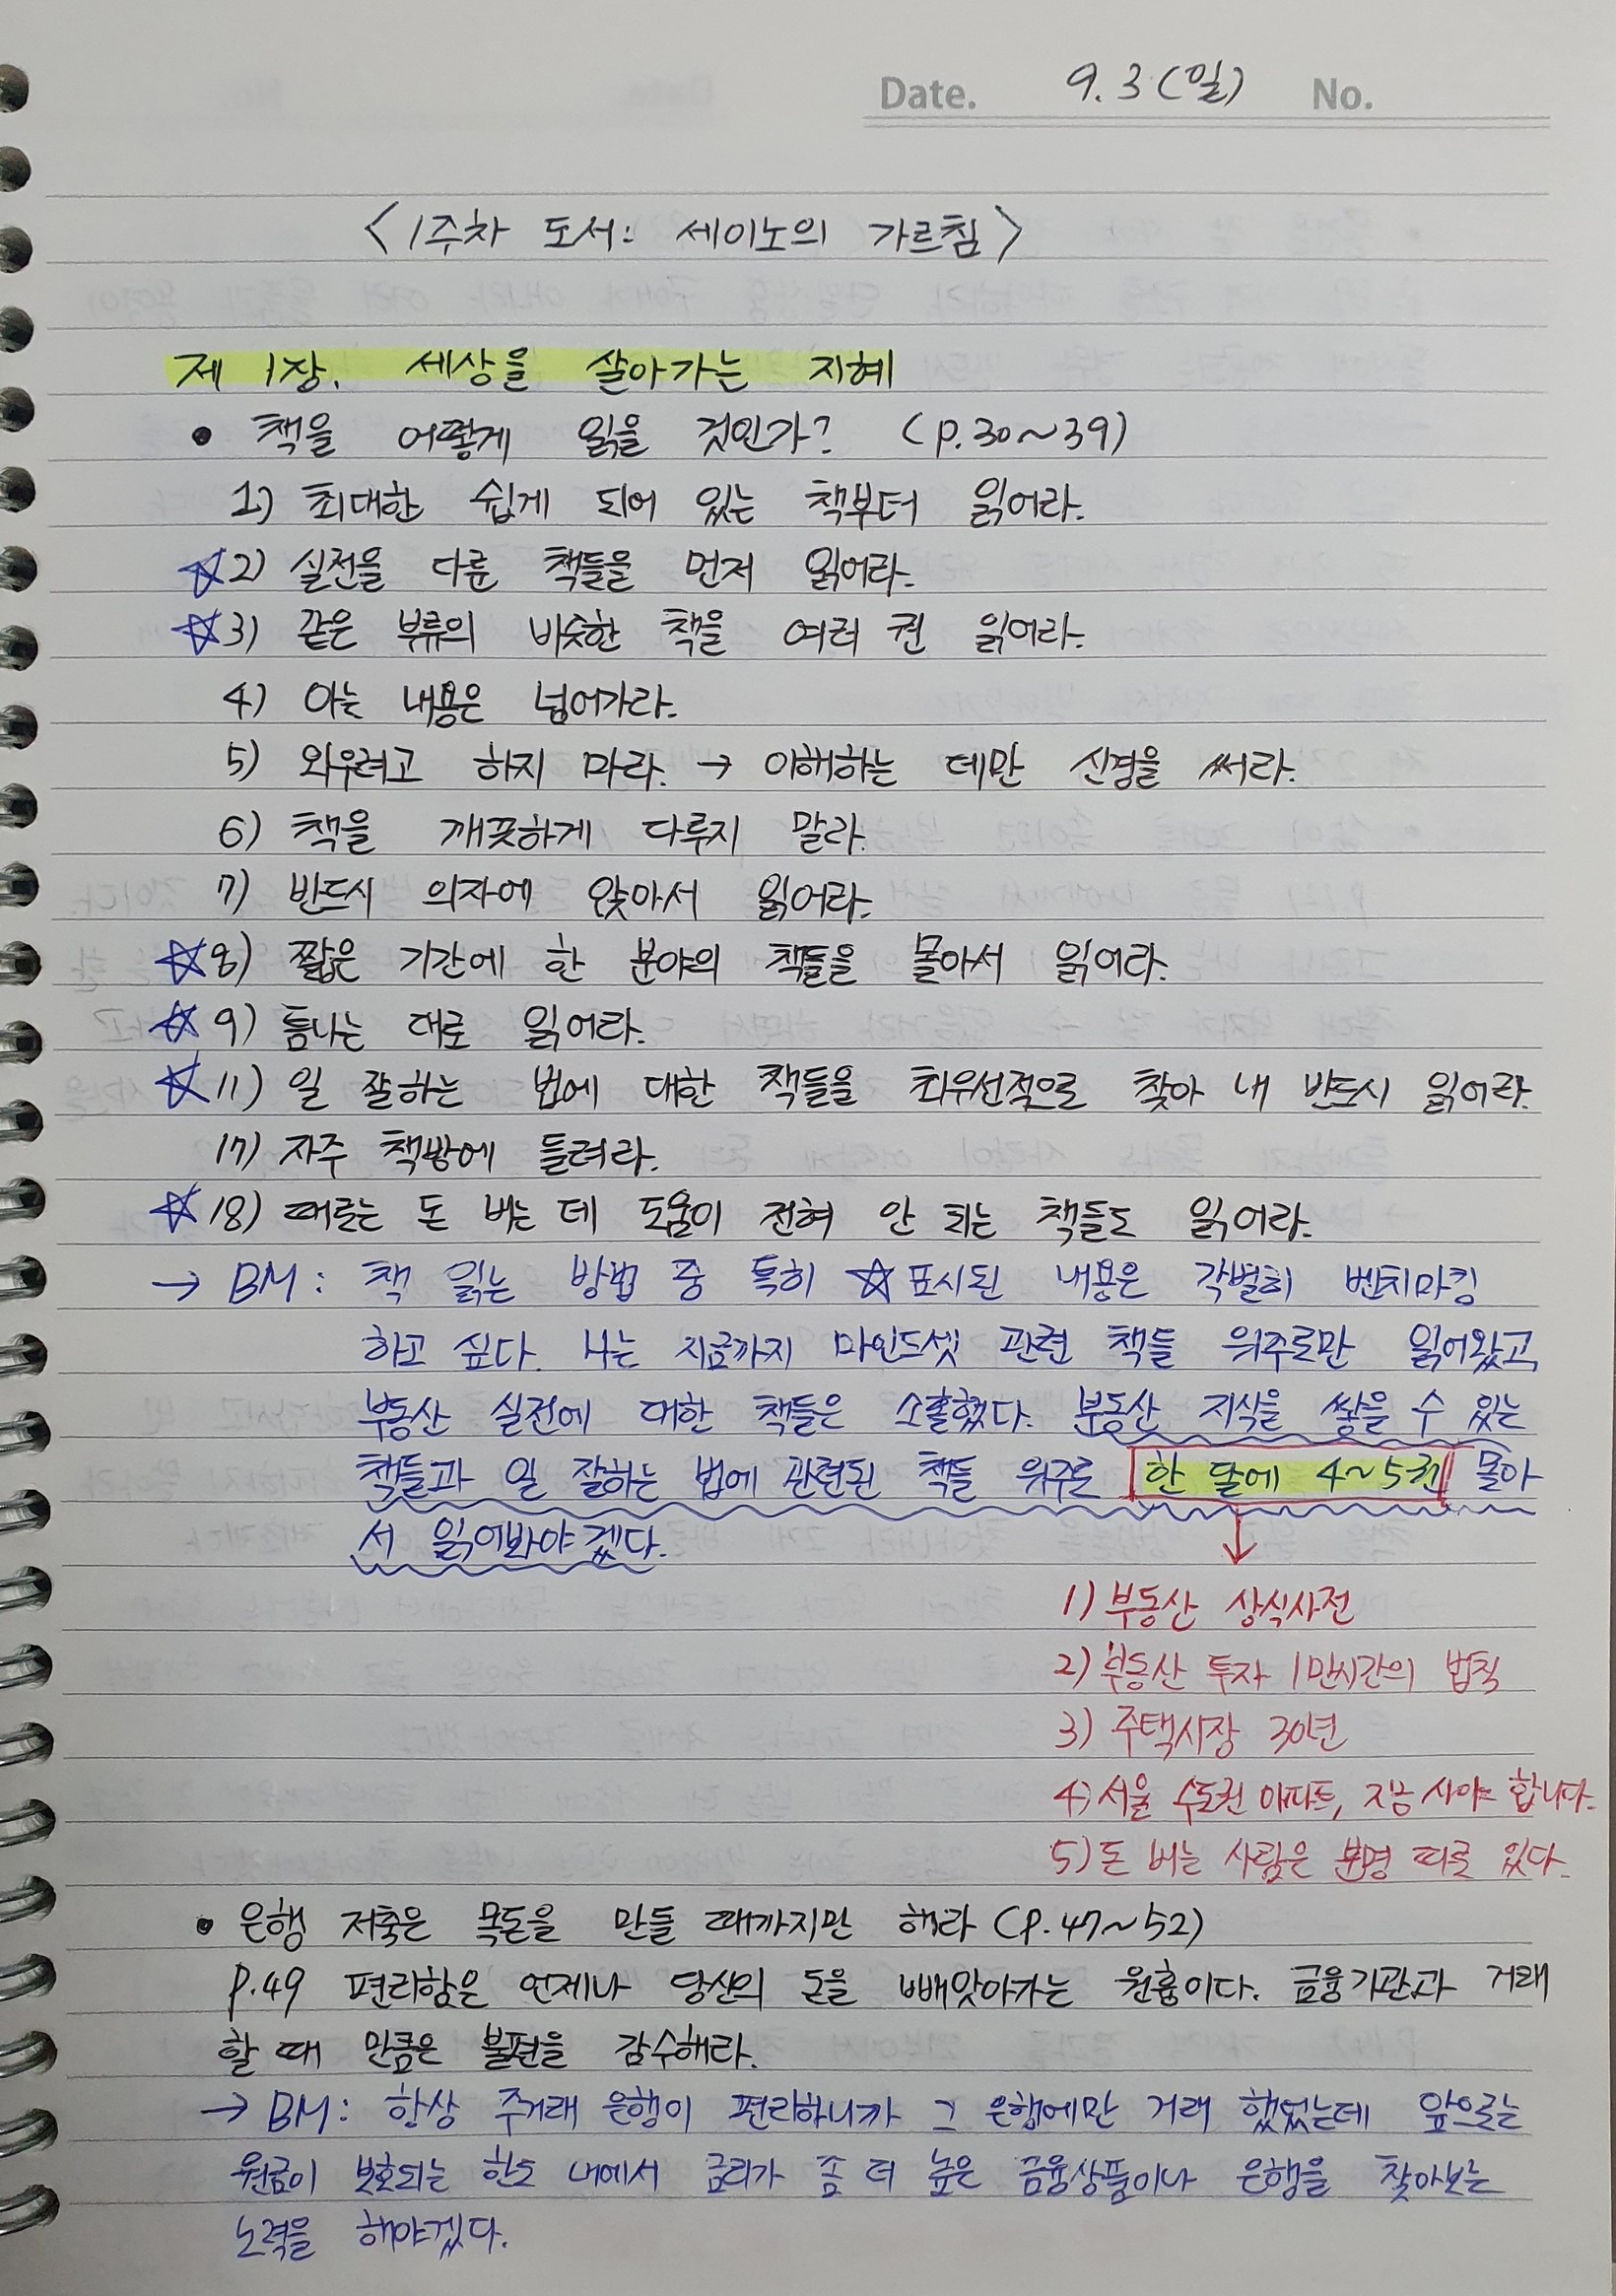 Date. 9.3(일) No.
<1주차 도서: 세이노의 가르침>
제 1장. 세상을 살아가는 지혜
• 책을 어떻게 읽을 것인가? (p.30~39)
1) 최대한 쉽게 되어 있는 책부터 읽어라.
☆2) 실전을 다룬 책들을 먼저 읽어라.
☆3) 같은 부류의 비슷한 책을 여러 권 읽어라.
4) 아는 내용은 넘어가라.
5) 외우려고 하지 마라. → 이해하는 데만 신경을 써라.
6) 책을 깨끗하게 다루지 말라.
7) 반드시 의자에 앉아서 읽어라.
☆8) 짧은 기간에 한 분야의 책들을 몰아서 읽어라.
☆9) 틈나는 대로 읽어라.
☆11) 일 잘하는 법에 대한 책들을 최우선적으로 찾아 내 반드시 읽어라.
17) 자주 책방에 들려라.
☆18) 때로는 돈 버는 데 도움이 전혀 안 되는 책들도 읽어라.
→ BM: 책 읽는 방법 중 특히 ☆표시된 내용은 각별히 벤치마킹
하고 싶다. 나는 지금까지 마인드셋 관련 책들 위주로만 읽어왔고
부동산 실전에 대한 책들은 소홀했다. 부동산 지식을 쌓을 수 있는
책들과 일 잘하는 법에 관련된 책들 위주로 한 달에 4~5권 몰아
서 읽어봐야겠다.
1) 부동산 상식사전
2) 부동산 투자 1만시간의 법칙
3) 주택시장 30년
4) 서울 수도권 아파트, 지금 사야 합니다.
5) 돈 버는 사람은 분명 따로 있다.
• 은행 저축은 목돈을 만들 때까지만 해라 (p.47~52)
p.49 편리함은 언제나 당신의 돈을 빼앗아가는 원흉이다. 금융기관과 거래
할 때 만큼은 불편을 감수해라.
→ BM: 항상 주거래 은행이 편리하니까 그 은행에만 거래 했었는데 앞으로는
원금이 보호되는 한도 내에서 금리가 좀 더 높은 금융상품이나 은행을 찾아보는
노력을 해야겠다.